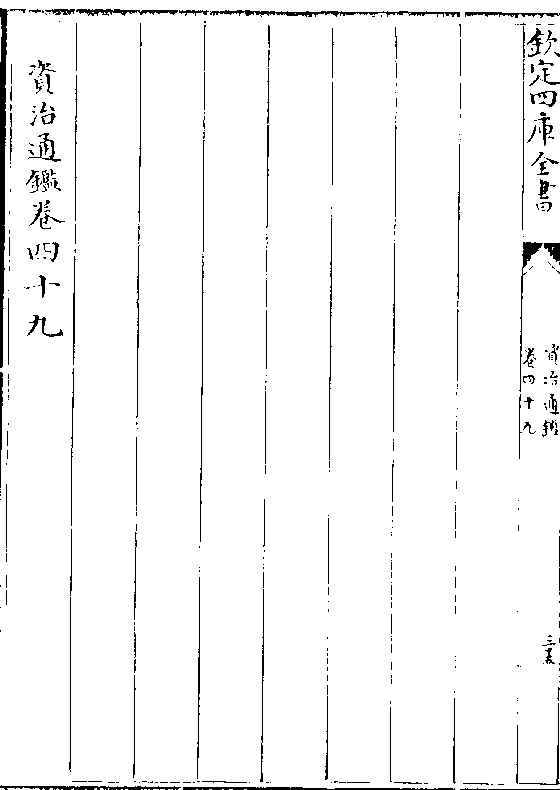 欽定四庫全書
資治通鑑
卷四十九
三十五
資治通鑑卷四十九